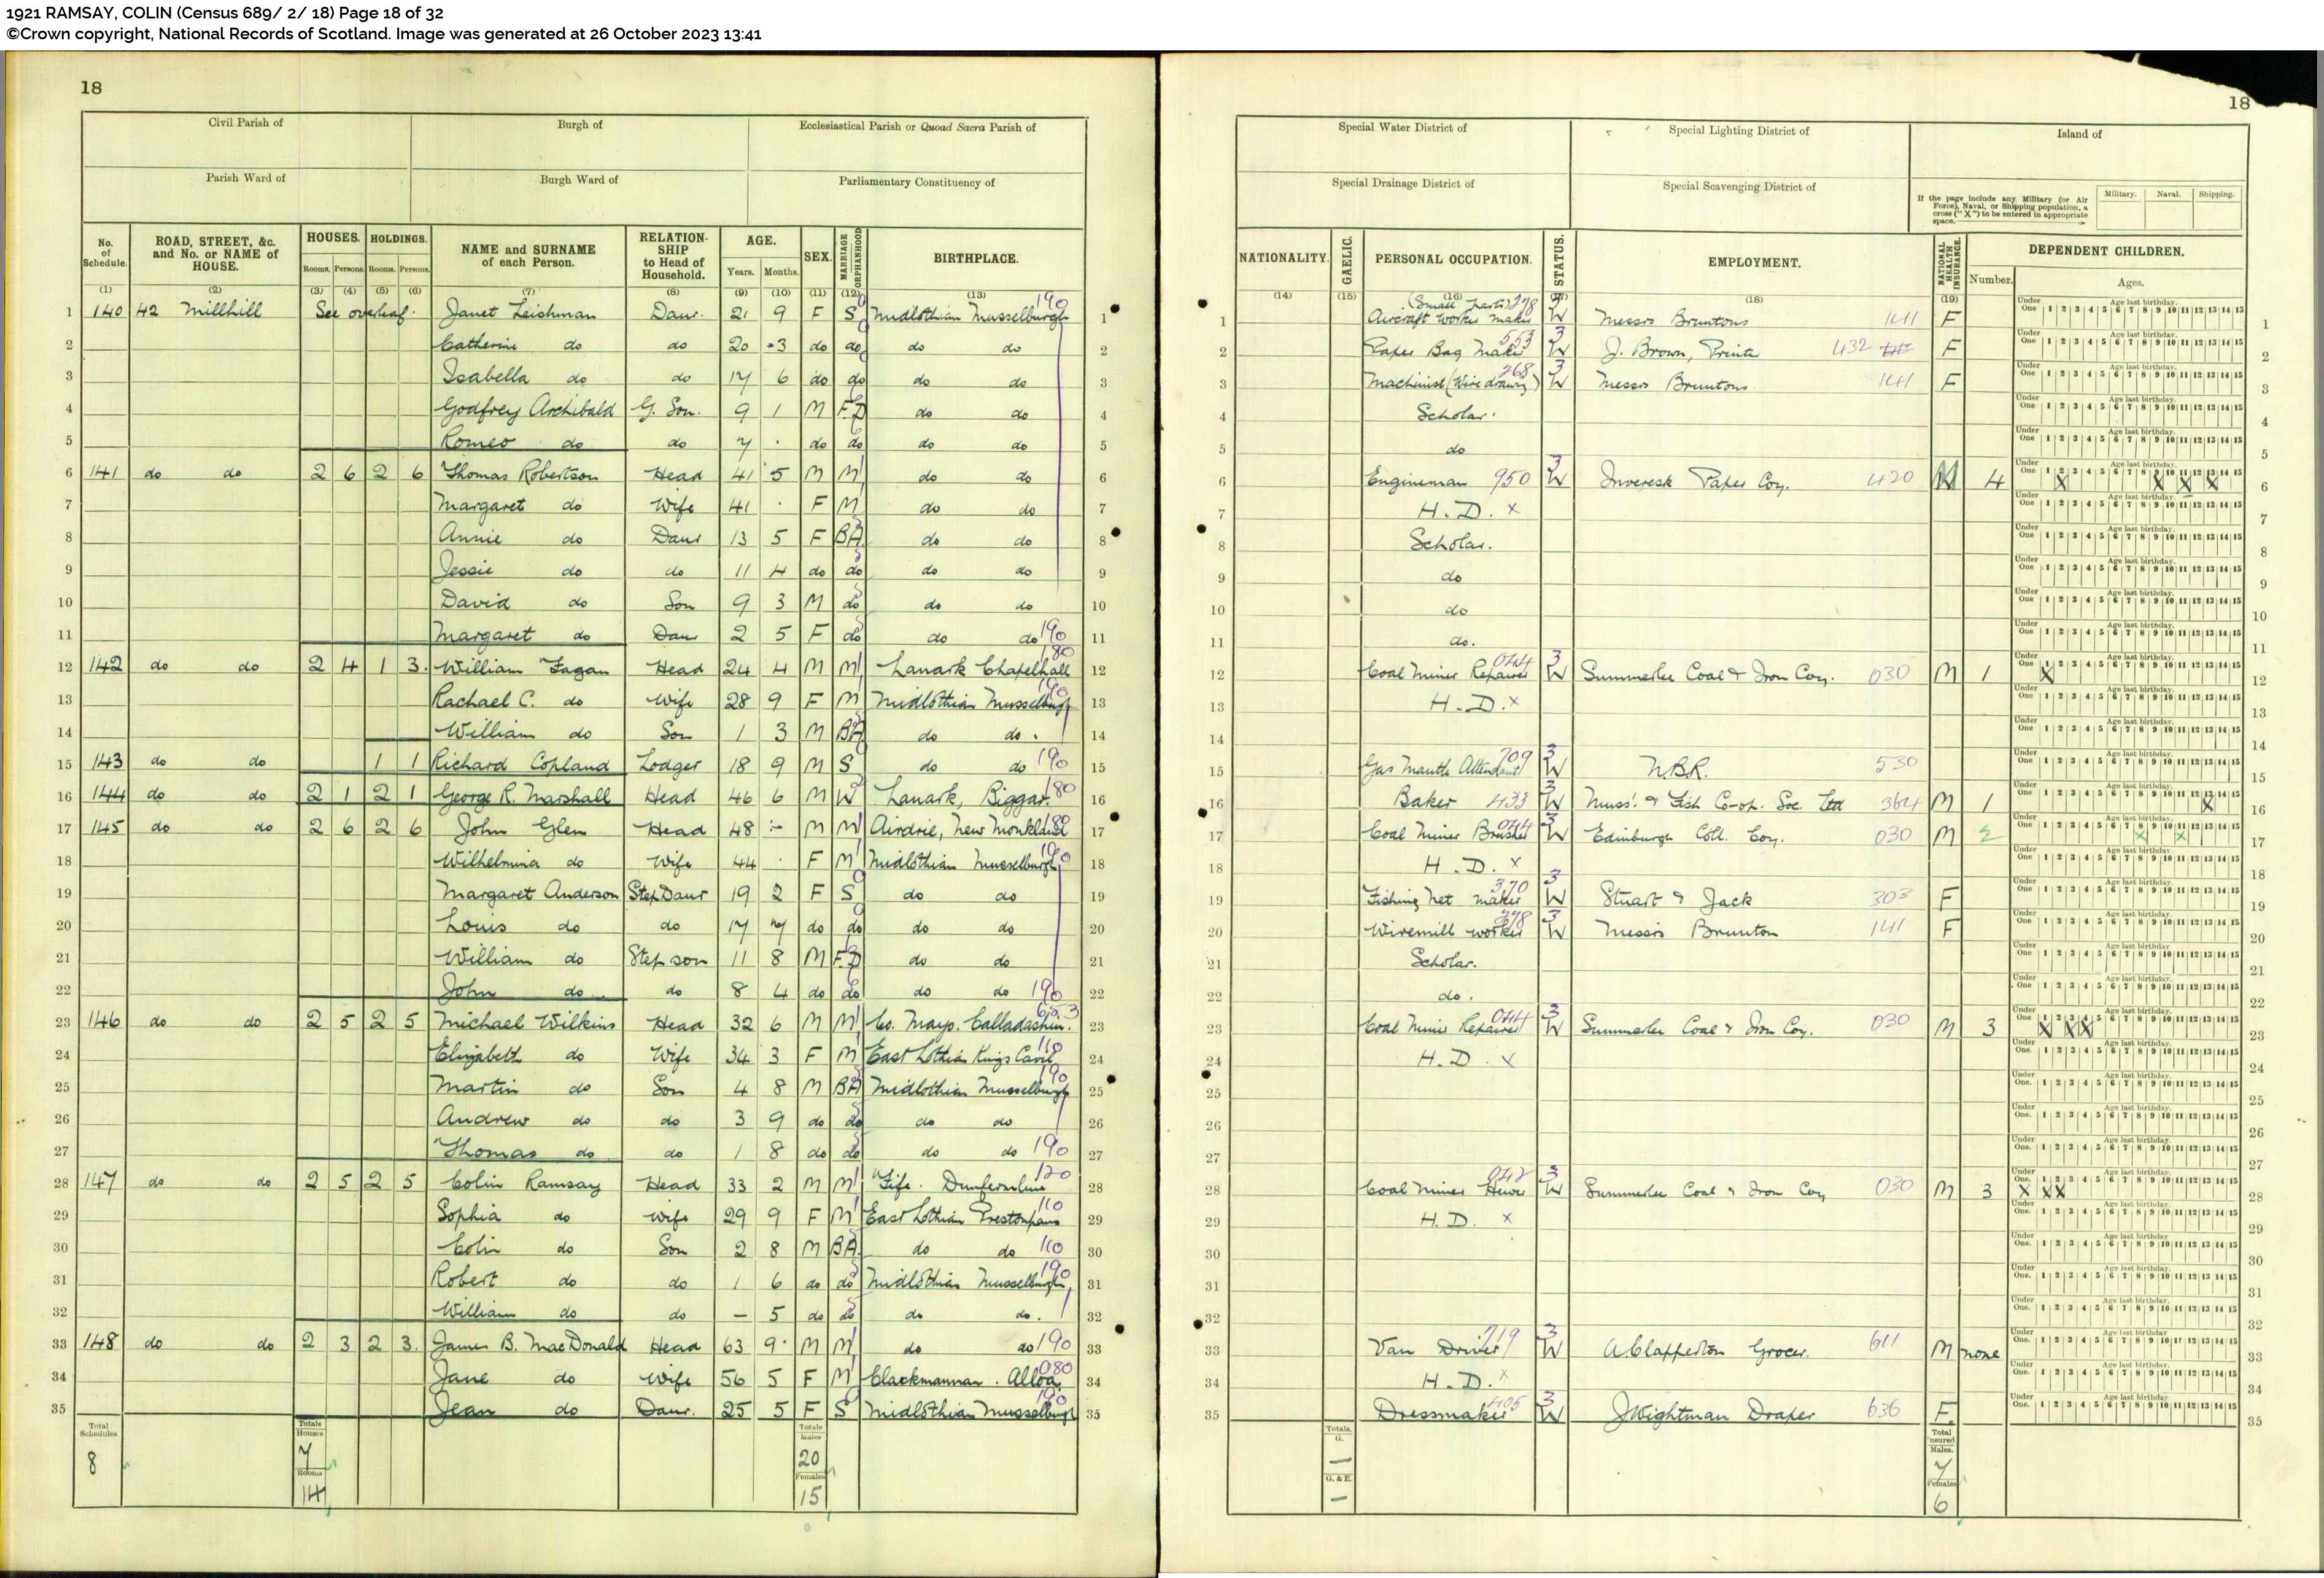 1921 RAMSAY, COLIN (Census 689/ 2/ 18) Page 18 of 32
©Crown copyright, National Records of Scotland. Image was generated at 26 October 2023 13:41
18
Civil Parish of Burgh of Ecclesiastical Parish or Quoad Sacra Parish of
Parish Ward of Burgh Ward of Parliamentary Constituency of
No. of Schedule. ROAD, STREET, &c. and No. or NAME of HOUSE. HOUSES. HOLDINGS. NAME and SURNAME of each Person. RELATIONSHIP to Head of Household. AGE. SEX. MARRIAGE ORPHANHOOD BIRTHPLACE.
Rooms. Persons. Rooms. Persons. Years. Months.
(1) (2) (3) (4) (5) (6) (7) (8) (9) (10) (11) (12) (13)
1 140 42 Millhill See overleaf. Janet Leishman Daur. 21 9 F S Midlothian Musselburgh 190 1
2 Catherine do do 20 3 do do do do 2
3 Isabella do do 17 6 do do do do 3
4 Godfrey Archibald G. Son. 9 1 M F.D do do 4
5 Romeo do do 7 · do do do do 5
6 141 do do 2 6 2 6 Thomas Robertson Head 41 5 M M do do 6
7 Margaret do Wife 41 · F M do do 7
8 Annie do Daur 13 5 F BA do do 8
9 Jessie do do 11 4 do do do do 9
10 David do Son 9 3 M do do do 10
11 Margaret do Daur 2 5 F do do do 190 11
12 142 do do 2 4 1 3. William Fagan Head 24 4 M M Lanark Chapelhall 180 12
13 Rachael C. do Wife 28 9 F M Midlothian Musselburgh 190 13
14 William do Son 1 3 M BA do do. 14
15 143 do do 1 1 Richard Copland Lodger 18 9 M S do do 190 15
16 144 do do 2 1 2 1 George R. Marshall Head 46 6 M W Lanark, Biggar. 180 16
17 145 do do 2 6 2 6 John Glen Head 48 - M M Airdrie, New Monkland 180 17
18 Wilhelmina do Wife 44 · F M Midlothian Musselburgh 190 18
19 Margaret Anderson Step Daur 19 2 F S do do 19
20 Louis do do 17 7 do do do do 20
21 William do Step son 11 8 M F.D do do 21
22 John do do 8 4 do do do do 190 22
23 146 do do 2 5 2 5 Michael Wilkins Head 32 6 M M Co. Mayo. 23
24 Elizabeth do Wife 34 3 F M East Lothian Kings 110 24
25 Martin do Son 4 8 M BA Midlothian Musselburgh 190 25
26 Andrew do do 3 9 do do do do 26
27 Thomas do do 1 8 do do do do 190 27
28 147 do do 2 5 2 5 Colin Ramsay Head 33 2 M M Fife. Dunfermline 120 28
29 Sophia do Wife 29 9 F M East Lothian Prestonpans 110 29
30 Colin do Son 2 8 M BA do do 110 30
31 Robert do do 1 6 do do Midlothian Musselburgh 190 31
32 William do do - 5 do do do do. 32
33 148 do do 2 3 2 3. James B. MacDonald Head 63 9 M M do do 190 33
34 Jane do Wife 56 5 F M Clackmannan. Alloa 080 34
35 Jean do Daur. 25 5 F S Midlothian Musselburgh 190 35
Total Schedules Totals Houses Totals Males
8 7 20
Rooms Females
14 15
18
Special Water District of Special Lighting District of Island of
Special Drainage District of Special Scavenging District of
If the page include any Military (or Air Force), Naval, or Shipping population, a cross ("X") to be entered in appropriate space. Military. Naval. Shipping.
NATIONALITY. GAELIC. PERSONAL OCCUPATION. STATUS. EMPLOYMENT. NATIONAL HEALTH INSURANCE. DEPENDENT CHILDREN.
Number. Ages.
(14) (15) (16) (17) (18) (19)
Under One Age last birthday. 1 2 3 4 5 6 7 8 9 10 11 12 13 14 15
1 (Small parts) 278 Aircraft worker maker W Messrs Bruntons 141 F 1
2 Paper Bag Maker 553 W J. Brown, Printer 432 F 2
3 Machinist (Wire drawing) 268 W Messrs Bruntons 141 F 3
4 Scholar. 4
5 do 5
6 Engineman 950 W Inveresk Paper Coy. 420 M 4 X X X X 6
7 H.D. x 7
8 Scholar. 8
9 do 9
10 do 10
11 do. 11
12 Coal Miner Repairer 044 3 W Summerlee Coal & Iron Coy. 030 M 1 X 12
13 H.D. x 13
14 14
15 Gas Mantle Attendant 709 3 W N.B.R. 530 15
16 Baker 433 3 W Muss. & Fish Co-op. Soc. Ltd 364 M 1 X 16
17 Coal Miner Brusher 044 3 W Edinburgh Coll. Coy. 030 M 2 x x 17
18 H.D. x 18
19 Fishing Net maker 370 3 W Stuart & Jack 303 F 19
20 Wiremill worker 278 3 W Messrs Brunton 141 F 20
21 Scholar. 21
22 do. 22
23 Coal Miner Repairer 044 3 W Summerlee Coal & Iron Coy. 030 M 3 X X X 23
24 H.D. x 24
25 25
26 26
27 27
28 Coal Miner Hewer 042 3 W Summerlee Coal & Iron Coy 030 M 3 X X X 28
29 H.D. x 29
30 30
31 31
32 32
33 Van Driver 719 3 W A Clapperton Grocer. 611 M none 33
34 H.D. x 34
35 Dressmaker 405 3 W J Wightman Draper 636 F. 35
Totals. G. Total Insured Males.
— 7
G. & E. Females
— 6